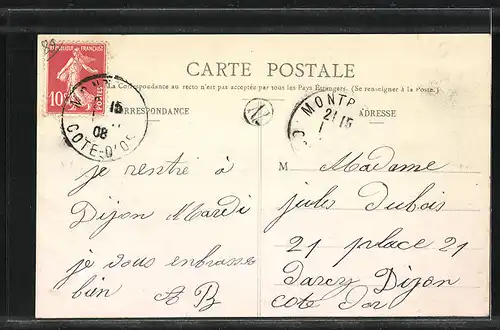 RÉPUBLIQUE FRANÇAISE
10c
POSTES
CARTE POSTALE
La Correspondance au recto n'est pas acceptée par tous les Pays Étrangers. (Se renseigner à la Poste.)
CORRESPONDANCE
ADRESSE
15
08
COTE-D'OR
MONTP
21 15
M Madame
jules Dubois
21 place 21
Darcy Dijon
cote d'or
je rentre à
Dijon Mardi
je vous enbrasse
bien AB